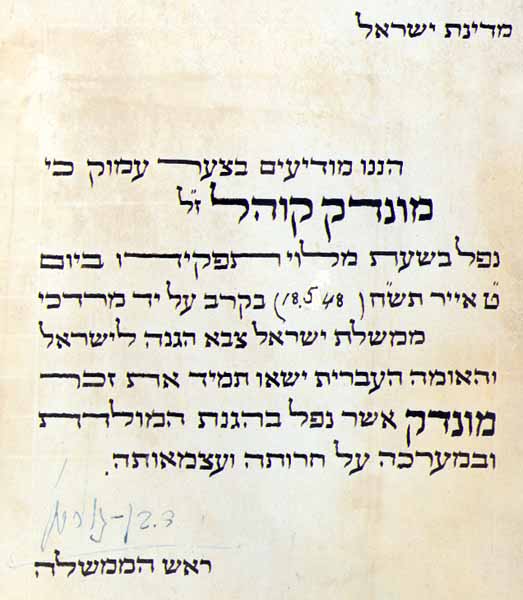 מדינת ישראל
הננו מודיעים בצער עמוק כי
מונדק קוהל ז״ל
נפל בשעת מלוי תפקידו ביום
ט׳ אייר תש״ח (18.5.48) בקרב על יד מרדכי
ממשלת ישראל צבא הגנה לישראל
והאומה העברית ישאו תמיד את זכר
מונדק אשר נפל בהגנת המולדת
ובמערכה על חרותה ועצמאותה.
ד. בן-גוריון
ראש הממשלה